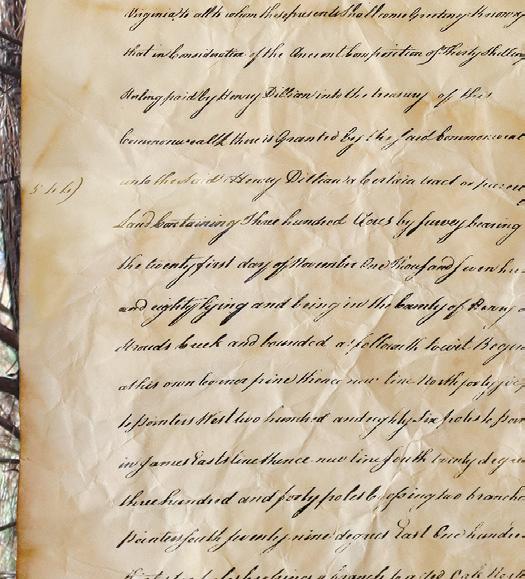 Virginia To all to whom these presents Shall come Greeting Know
that in Consideration of the Ancient Composition of Thirty Shillings
Sterling paid by Henry Dillian into the treasury of this
Commonwealth there is Granted by the said Commonwealth
544)
unto the said Henry Dillian a Certain tract or parcel
Land Containing Three hundred Acres by survey bearing
the twenty first day of November One Thousand seven hun
and eighty lying and being in the County of
Creek and bounded as followeth towit Begin
at his own corner pine thence new line North forty
to pointers West two hundred and eighty Six poles to poin
in James East's line thence new line South twenty degre
three hundred and forty poles Crossing two branches
pointers South seventy nine degrees East One hundre